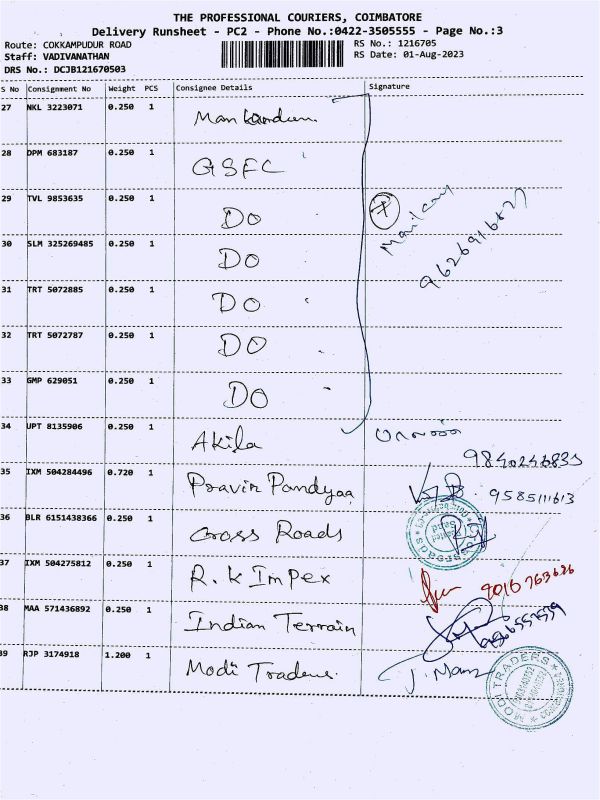 THE PROFESSIONAL COURIERS, COIMBATORE
Delivery Runsheet - PC2 - Phone No.:0422-3505555 - Page No.:3
Route: COKKAMPUDUR ROAD RS No.: 1216705
Staff: VADIVANATHAN RS Date: 01-Aug-2023
DRS No.: DCJB121670503
S No Consignment No Weight PCS Consignee Details Signature
27 NKL 3223071 0.250 1
28 DPM 683187 0.250 1 GSFC
29 TVL 9853635 0.250 1 DO
30 SLM 325269485 0.250 1 DO
9626916827
31 TRT 5072885 0.250 1 DO
32 TRT 5072787 0.250 1 DO
33 GMP 629051 0.250 1 DO
34 UPT 8135906 0.250 1 Akila
9840246835
35 IXM 504284496 0.720 1 Pravin Pandyaa 9585111613
36 BLR 6151438366 0.250 1 Cross Roads
37 IXM 504275812 0.250 1 R.K Impex
38 MAA 571436892 0.250 1 Indian Terrain
39 RJP 3174918 1.200 1 Modi Traders J. Mani
MODI TRADERS